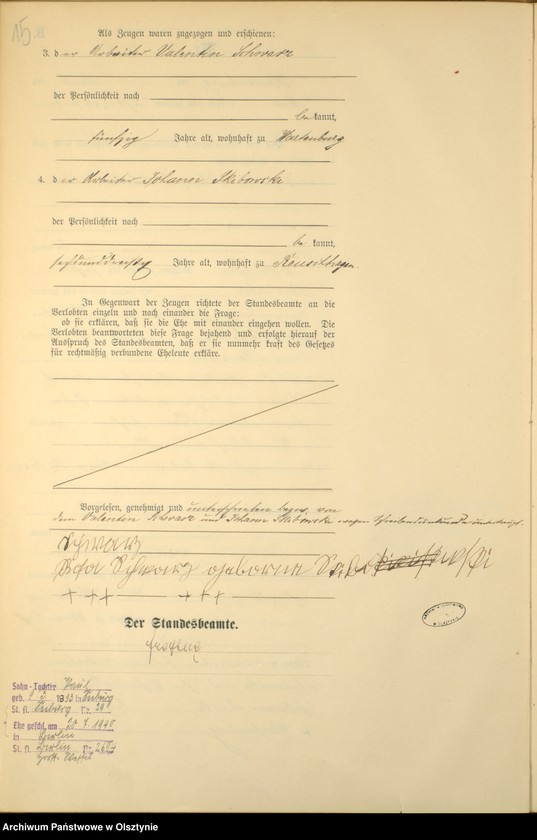 15.
Als Zeugen waren zugezogen und erschienen:
3. der Arbeiter Valentin Schwarz
der Persönlichkeit nach
be kannt,
fünfzig Jahre alt, wohnhaft zu Wartenburg
4. der Arbeiter Johann Skibowski
der Persönlichkeit nach
be kannt,
sechsunddreißig Jahre alt, wohnhaft zu Reuschhagen.
In Gegenwart der Zeugen richtete der Standesbeamte an die
Verlobten einzeln und nach einander die Frage:
ob sie erklären, daß sie die Ehe mit einander eingehen wollen. Die
Verlobten beantworteten diese Frage bejahend und erfolgte hierauf der
Ausspruch des Standesbeamten, daß er sie nunmehr kraft des Gesetzes
für rechtmäßig verbundene Eheleute erkläre.
Vorgelesen, genehmigt und unterschrieben bezw. von
dem Valentin Schwarz und Johann Skibowski wegen Schreibensunkunde unterkreuzt.
Schwarz
Schwarz geborene
+ ++ + + +
Der Standesbeamte.
Sohn - Tochter Paul
geb. 1913 in
St. A. Nr. 29
Ehe geschl. am 20.7.1940
in Berlin
St. A. Berlin Nr.
Archiwum Państwowe w Olsztynie